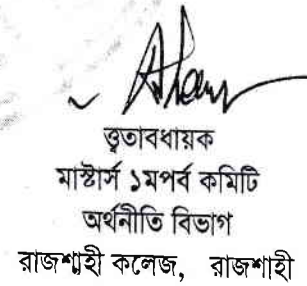 ত্বতাবধায়ক
মাস্টার্স ১মপর্ব কমিটি
অর্থনীতি বিভাগ
রাজশাহী কলেজ, রাজশাহী